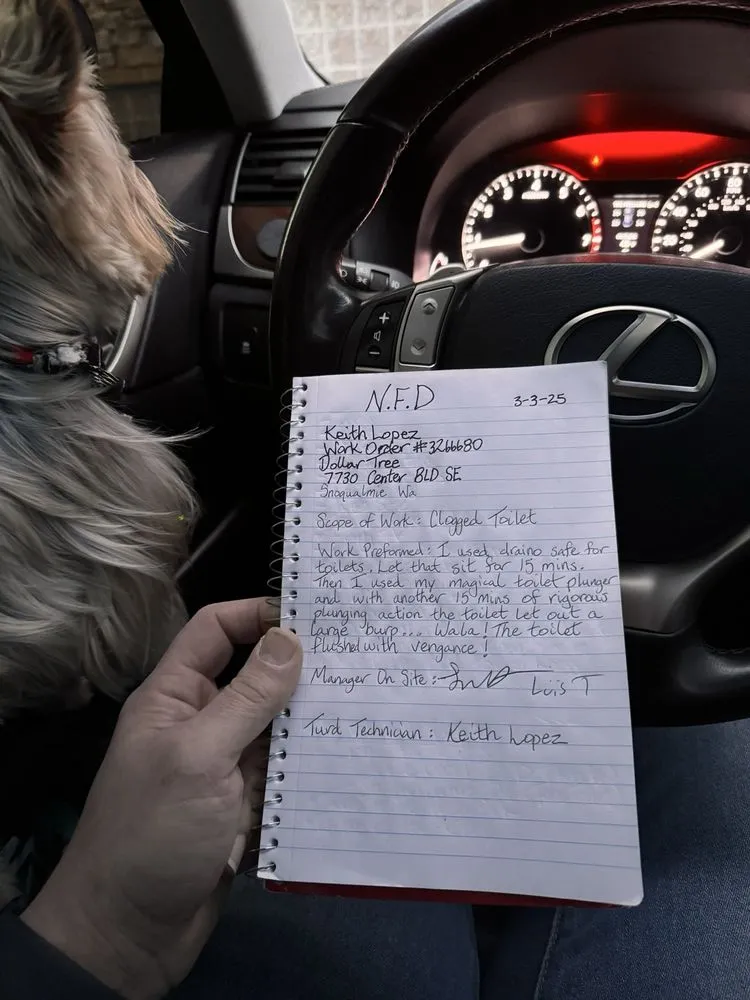 N.F.D 3-3-25
Keith Lopez
Work Order #3266680
Dollar Tree
7730 Center BLD SE
Snoqualmie Wa
Scope of Work: Clogged Toilet
Work Preformed: I used draino safe for
toilets. Let that sit for 15 mins.
Then I used my magical toilet plunger
and with another 15 mins of rigorous
plunging action the toilet let out a
large burp... Wala! The toilet
flushed with vengance!
Manager On Site: Luis T
Turd Technician: Keith Lopez